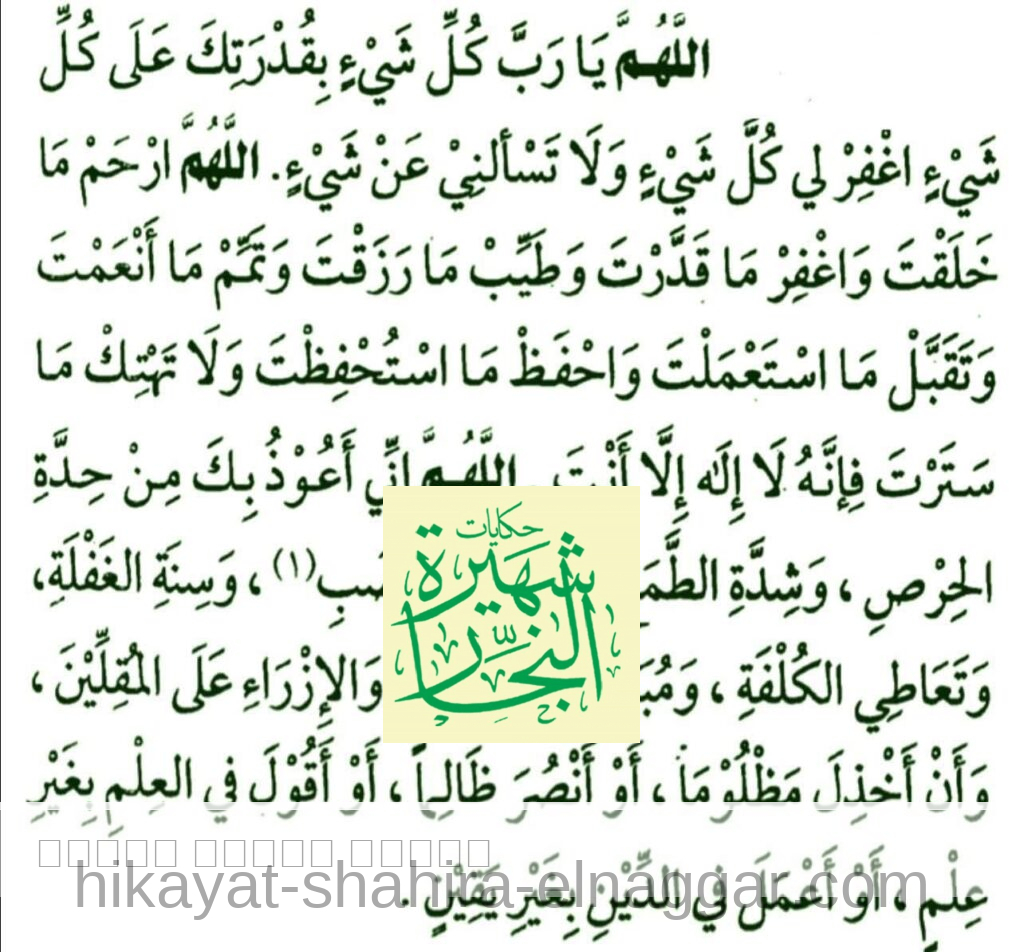 اللَّهُمَّ يَا رَبَّ كُلِّ شَيْءٍ بِقُدْرَتِكَ عَلَى كُلِّ
شَيْءٍ اغْفِرْ لي كُلَّ شَيْءٍ وَلَا تَسْألنِيْ عَنْ شَيْءٍ. اللَّهُمَّ ارْحَمْ مَا
خَلَقْتَ وَاغْفِرْ مَا قَدَّرْتَ وَطَيِّبْ مَا رَزَقْتَ وَتَمِّمْ مَا أَنْعَمْتَ
وَتَقَبَّلْ مَا اسْتَعْمَلْتَ وَاحْفَظْ مَا اسْتُحْفِظْتَ وَلَا تَهْتِكْ مَا
سَتَرْتَ فِإنَّهُ لَا إِلَه إِلَّا أَنْتَ . اللَّهُمَّ إنِّي أَعُوْذُ بِكَ مِنْ حِدَّةِ
الحِرْصِ ، وَشِدَّةِ (١) ، وَسِنَةِ الغَفْلَةِ،
وَتَعَاطِي الكُلْفَةِ ، وَالإِزْرَاءِ عَلَى المُقِلِّيْنَ ،
وَأَنْ أَخْذِلَ مَظْلُوْمَاً ، أَوْ أَنْصُرَ ظَالِماً ، أَوْ أَقُوْلَ في العِلْمِ بِغَيْرِ
عِلْمٍ ، أَوْ أَعْمَلَ في الدِّيْنِ بِغَيْرِ يَقِيْنٍ .
حكايات
شهيرة
النجَّار
hikayat-shahira-elnaggar.com